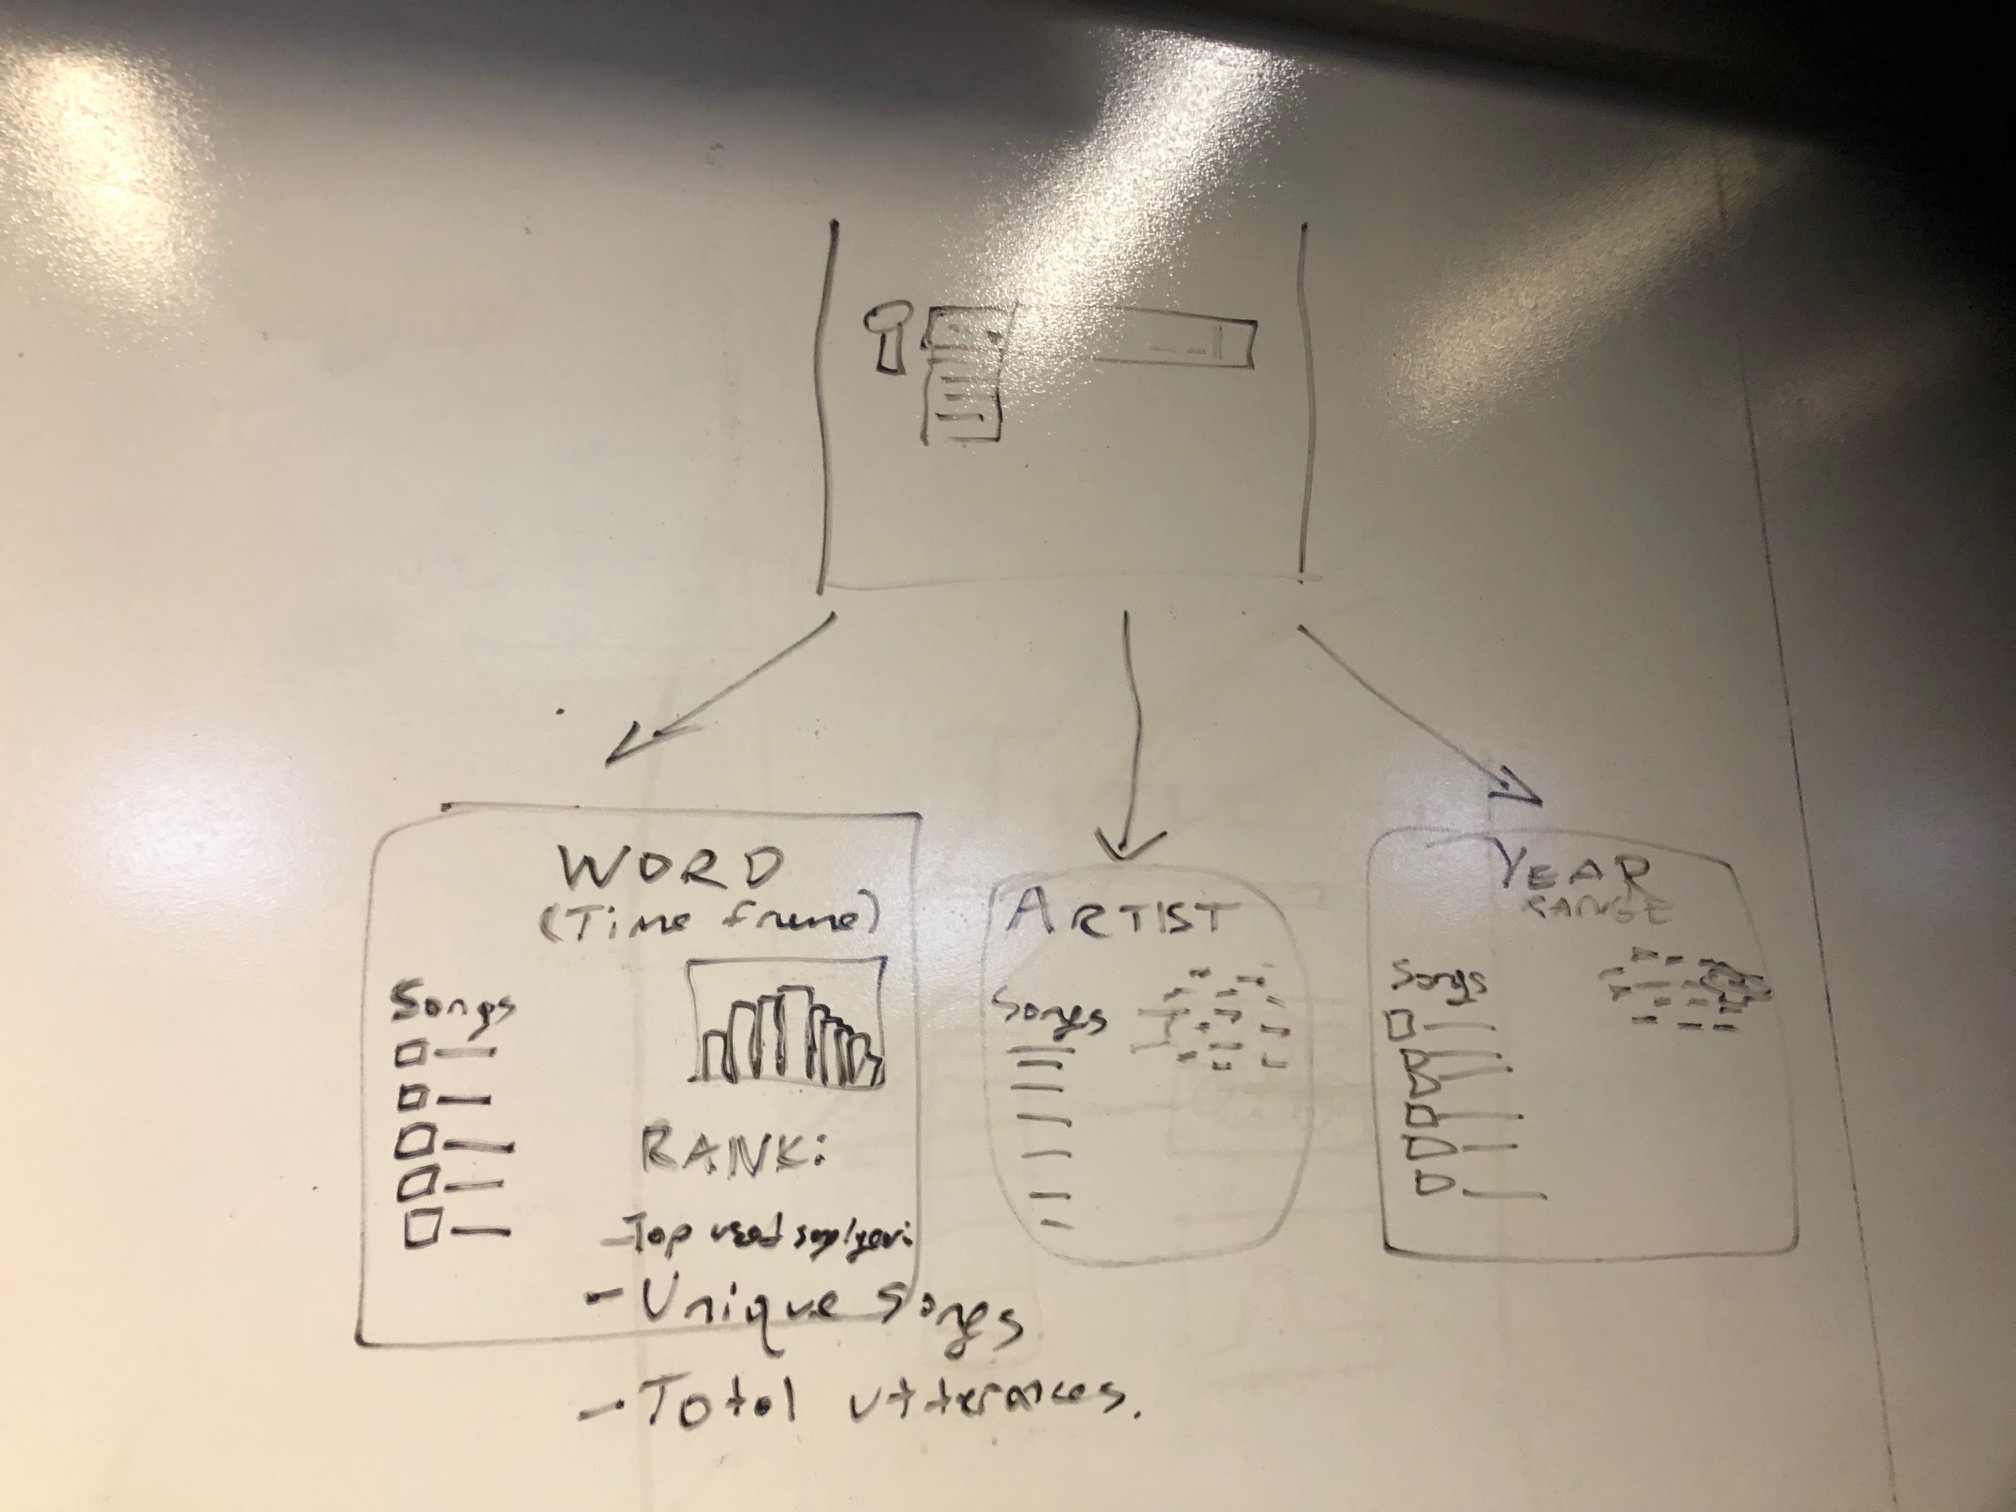 WORD
(Time frame)
Songs
RANK:
- Top used
- Unique Songs
- Total utterances.
ARTIST
Songs
YEAR
RANGE
Songs